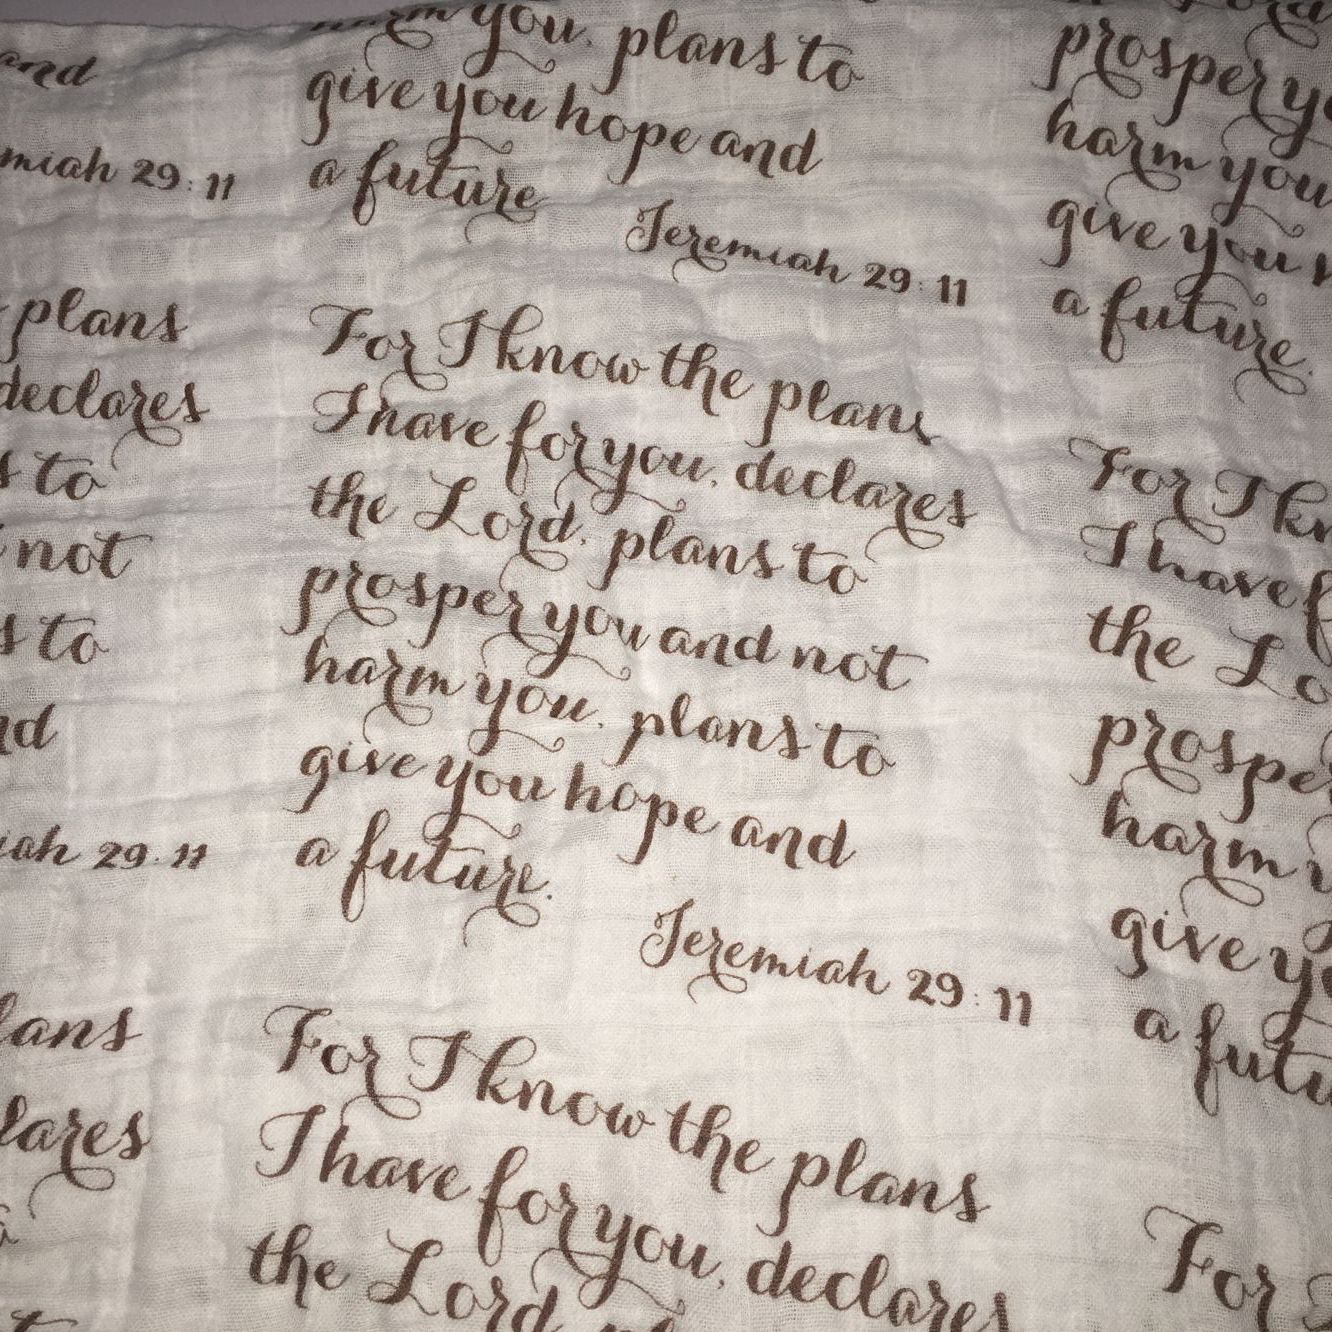 and
miah 29:11
plans
declares
s to
not
s to
nd
iah 29:11
lans
lares
harm you, plans to
give you hope and
a future
Jeremiah 29:11
For I know the plans
I have for you, declares
the Lord, plans to
prosper you and not
harm you, plans to
give you hope and
a future.
Jeremiah 29:11
For I know the plans
I have for you, declares
the Lord, pl
prosper y
harm you
give you h
a future.
For I kn
I have f
the Lo
prospe
harm y
give yo
a futu
For